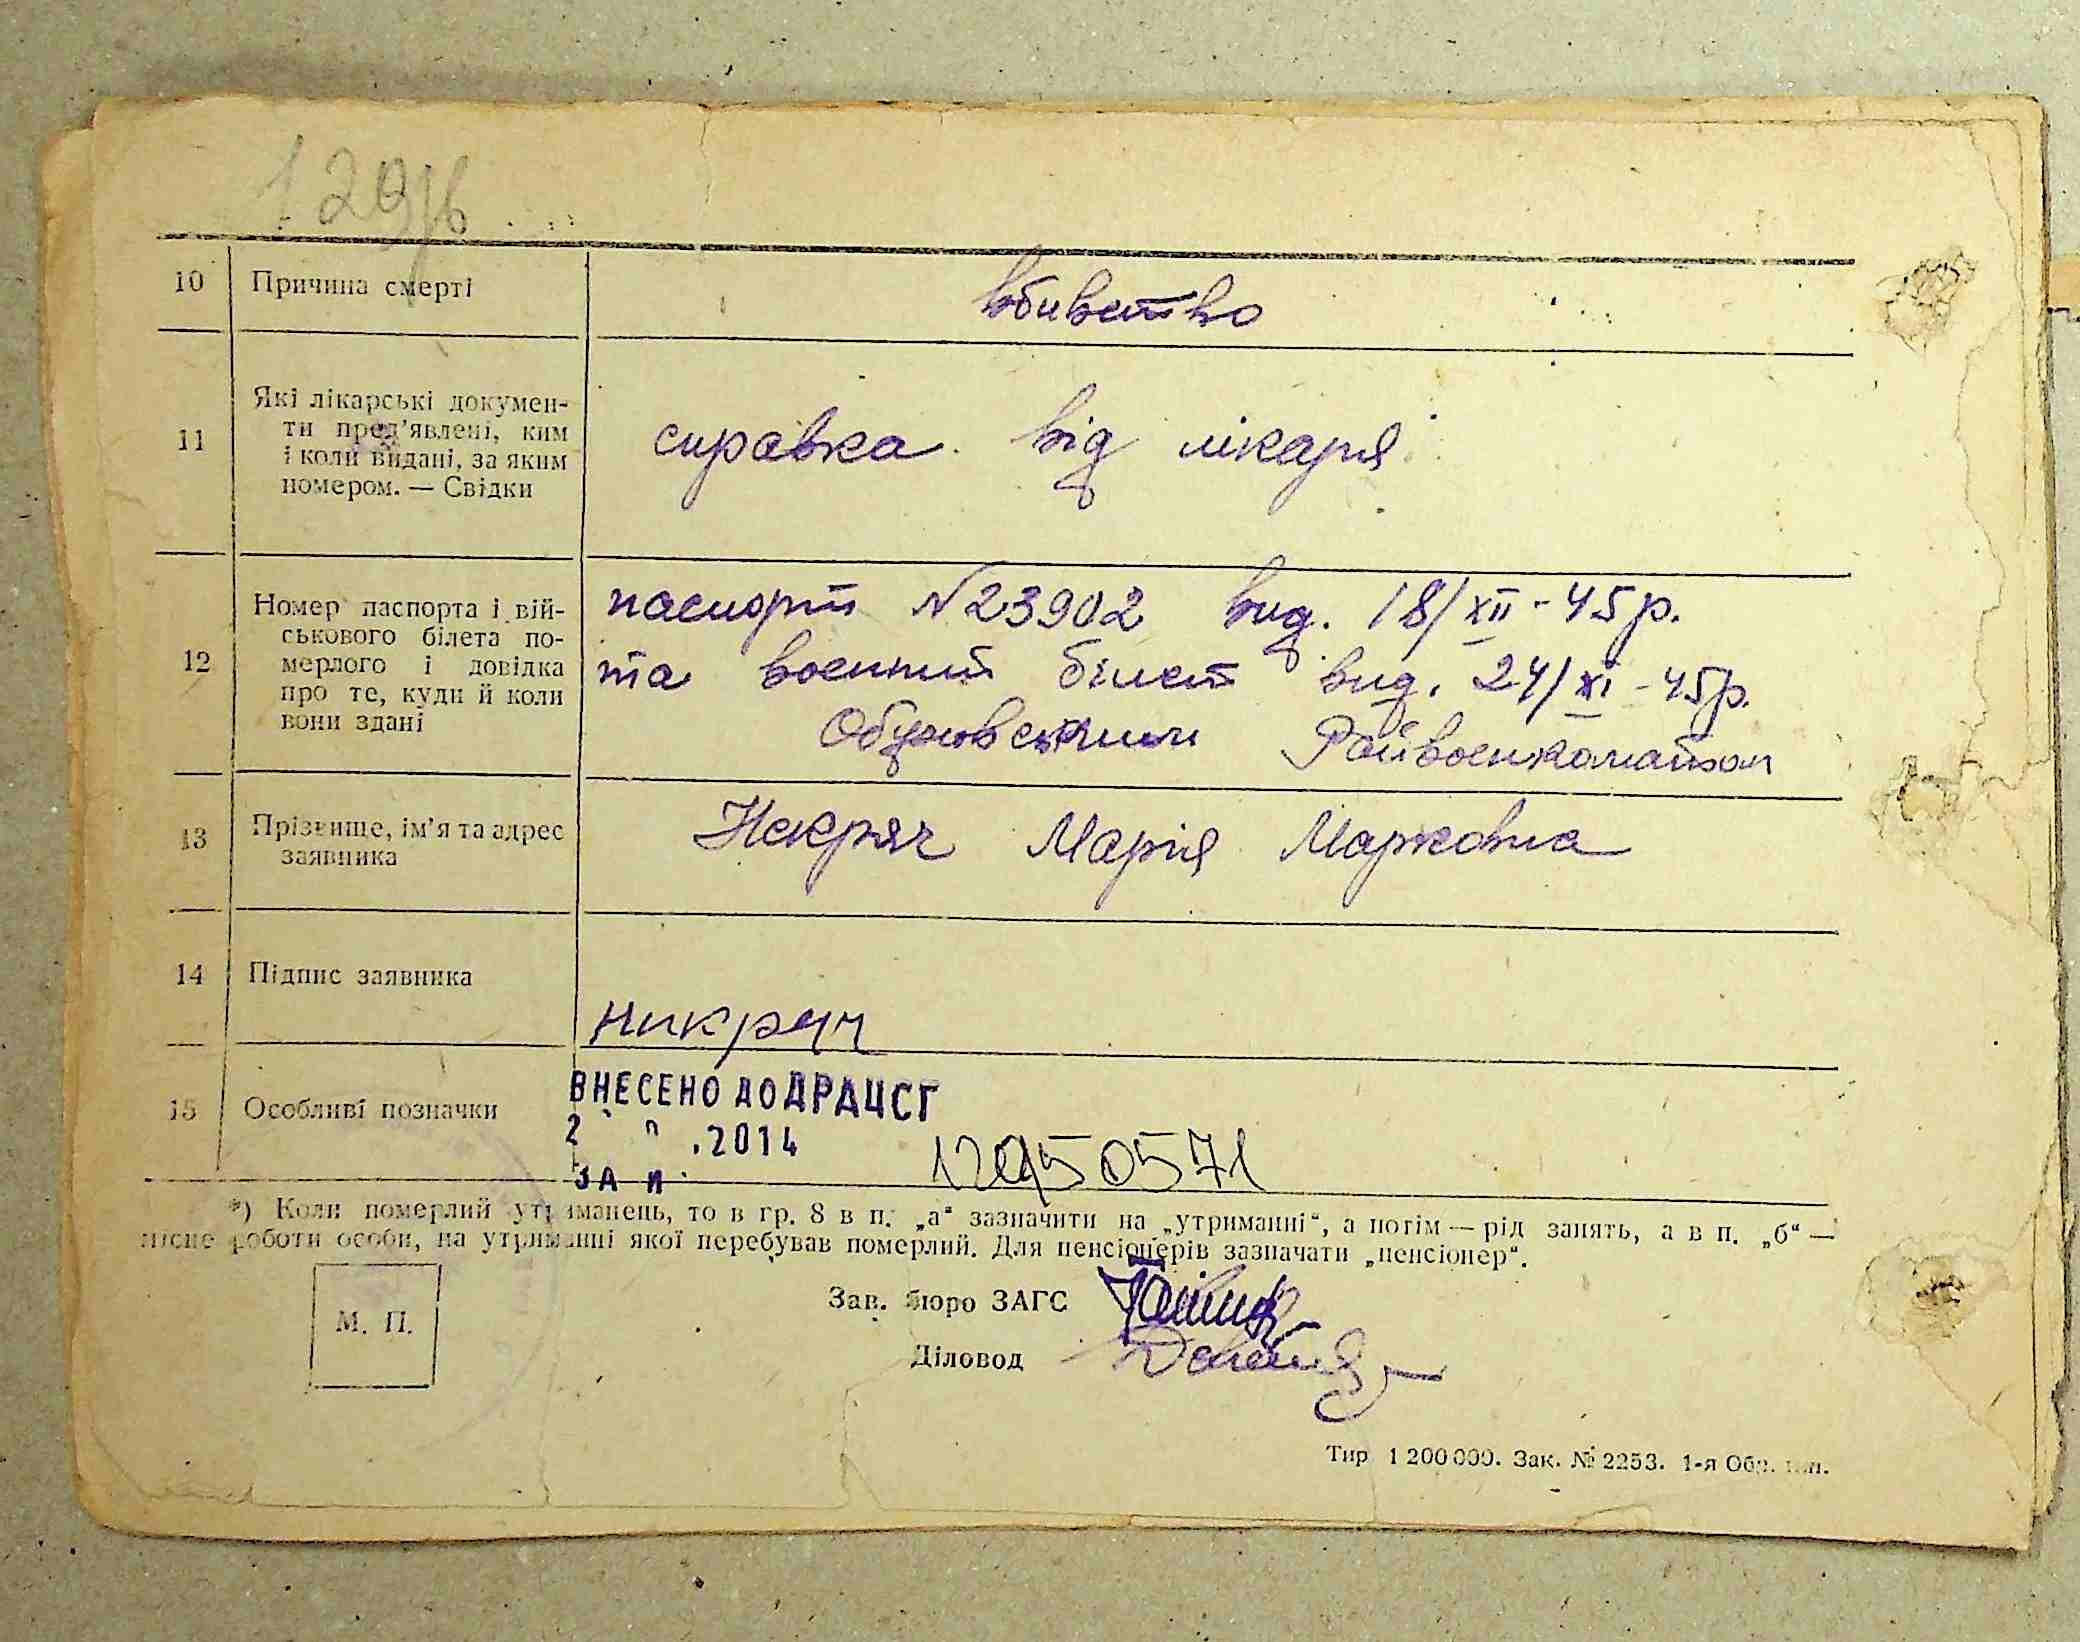 129/в
10 Причина смерті вбивство
11 Які лікарські докумен-
ти пред’явлені, ким
і коли видані, за яким
номером. — Свідки
справка від лікаря
12 Номер паспорта і вій-
ськового білета по-
мерлого і довідка
про те, куди й коли
вони здані
паспорт N23902 вид. 18/XII-45р.
та военний білет вид. 24/XI-45р.
Обуховським Райвоенкоматом
13 Прізвище, ім’я та адрес
заявника
Некряч Марія Марковна
14 Підпис заявника
никряч
15 Особливі позначки
ВНЕСЕНО ДО ДРАЦСГ
2 .2014
ЗА № 12950571
*) Коли померлий утриманець, то в гр. 8 в п. „а“ зазначити на „утриманні“, а потім — рід занять, а в п. „б“ —
місце роботи особи, на утриманні якої перебував померлий. Для пенсіонерів зазначати „пенсіонер“.
М. П.
Зав. бюро ЗАГС
Діловод
Тир 1 200 000. Зак. № 2253. 1-я Обр. тип.